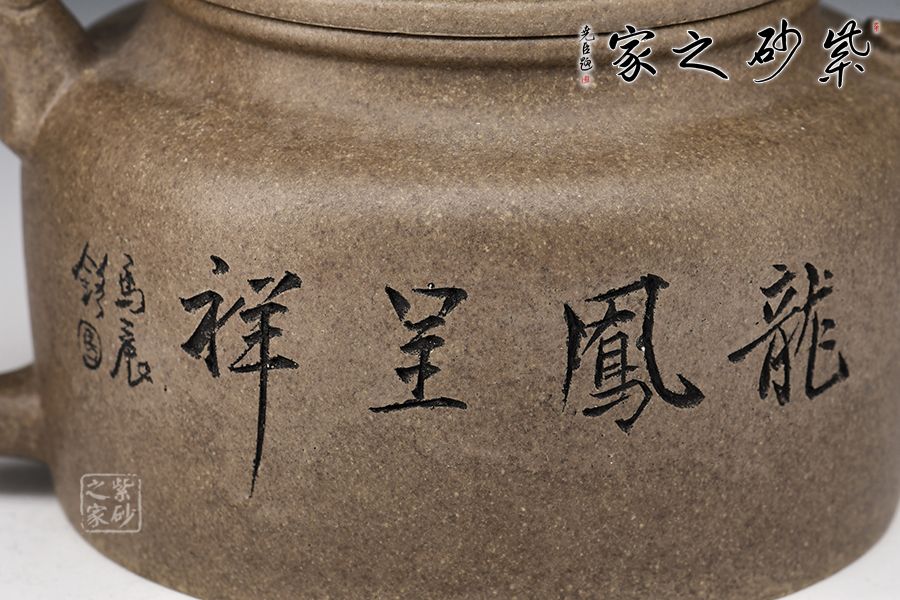 紫砂之家
龍鳳呈祥
紫砂
之家